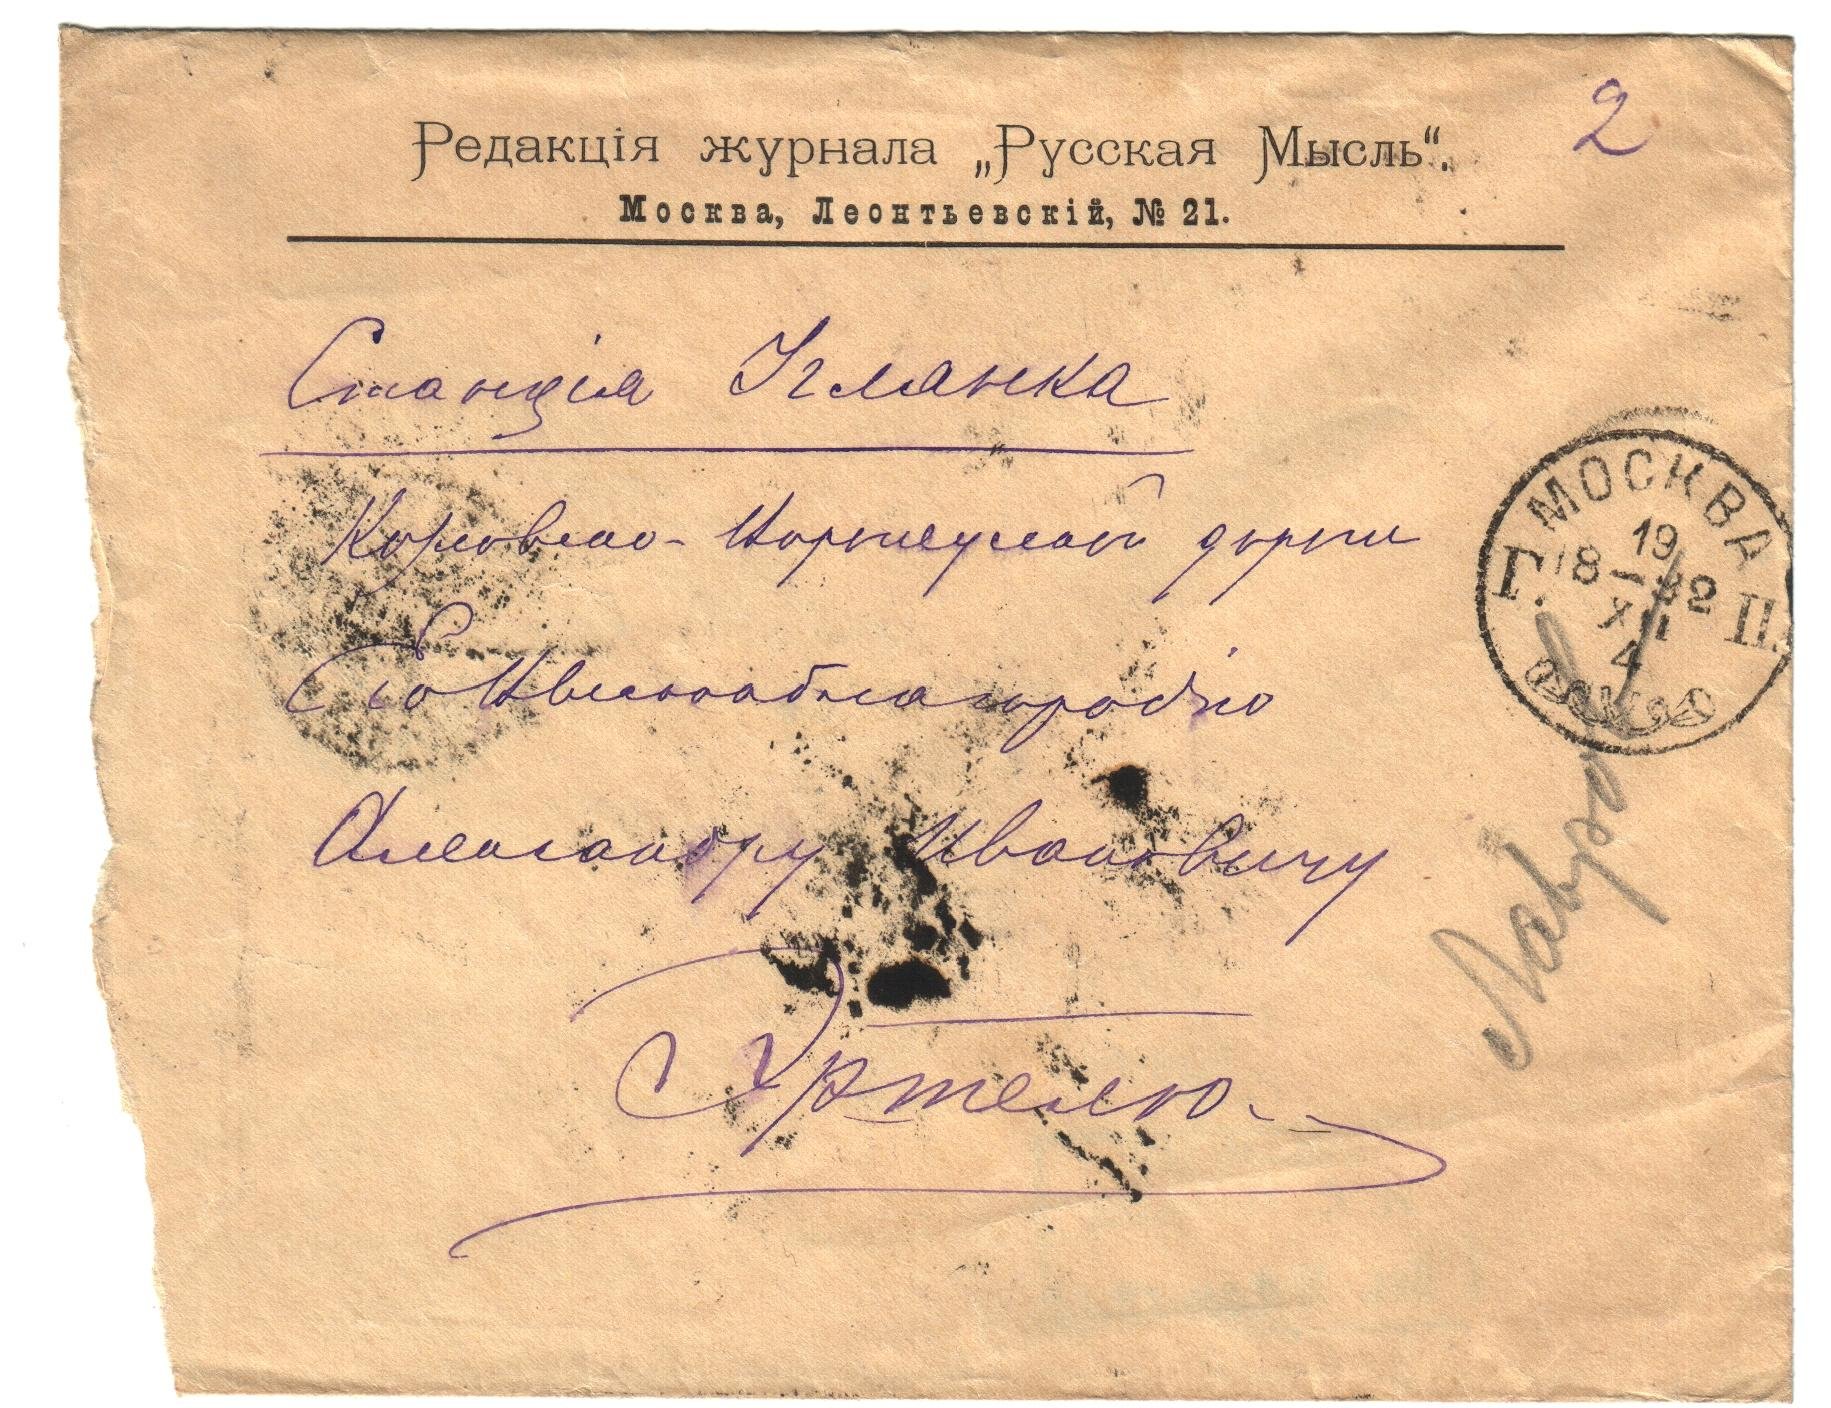 Редакція журнала „Русская Мысль“.
Москва, Леонтьевскій, № 21.
2
Станція Углянка
Козловско-Воронежской дороги
Его Высокоблагородію
Александру Ивановичу
Эртелю
МОСКВА
19
XII
4
Г. П.
МОСКВА
Лавров